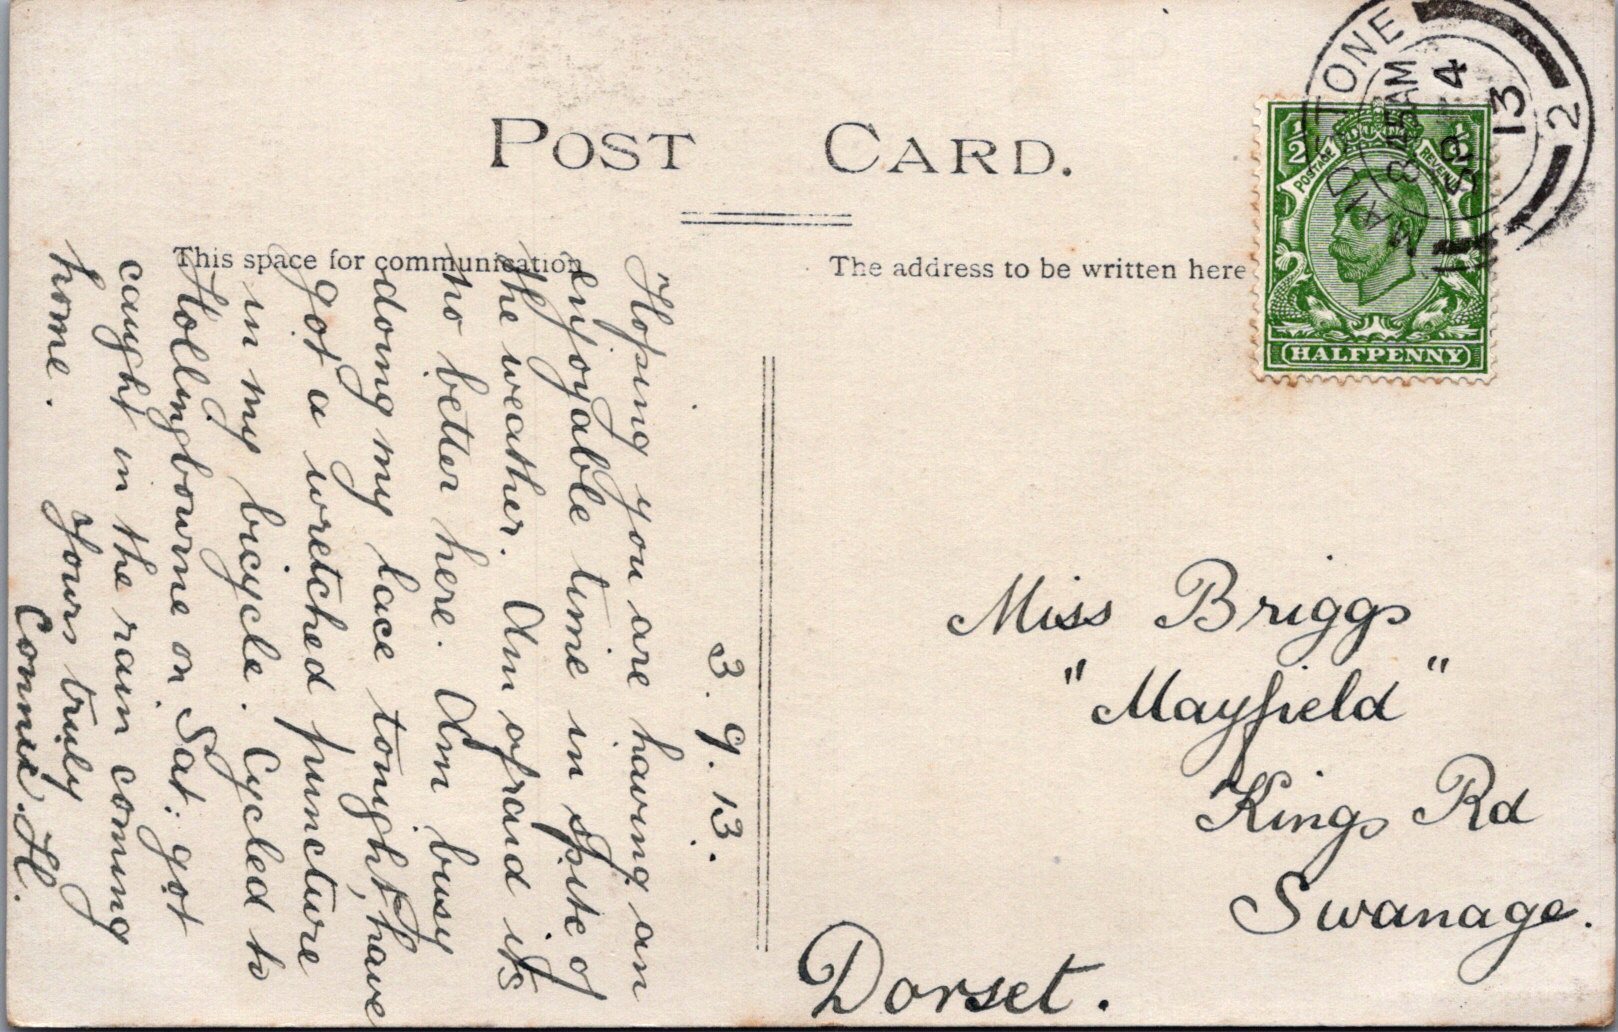 POST CARD.
This space for communication
The address to be written here
MAIDSTONE
8 15 AM
SP 4
13
2
1/2 1/2
POSTAGE REVENUE
HALFPENNY
3. 9. 13.
Hoping you are having an
enjoyable time in spite of
the weather. Am afraid its
no better here. Am busy
doing my lace tonight, have
got a wretched puncture
in my bicycle. Cycled to
Hollingbourne on Sat: got
caught in the rain coming
home. Yours truly
Connie. H.
Miss Briggs
"Mayfield"
Kings Rd
Swanage.
Dorset.